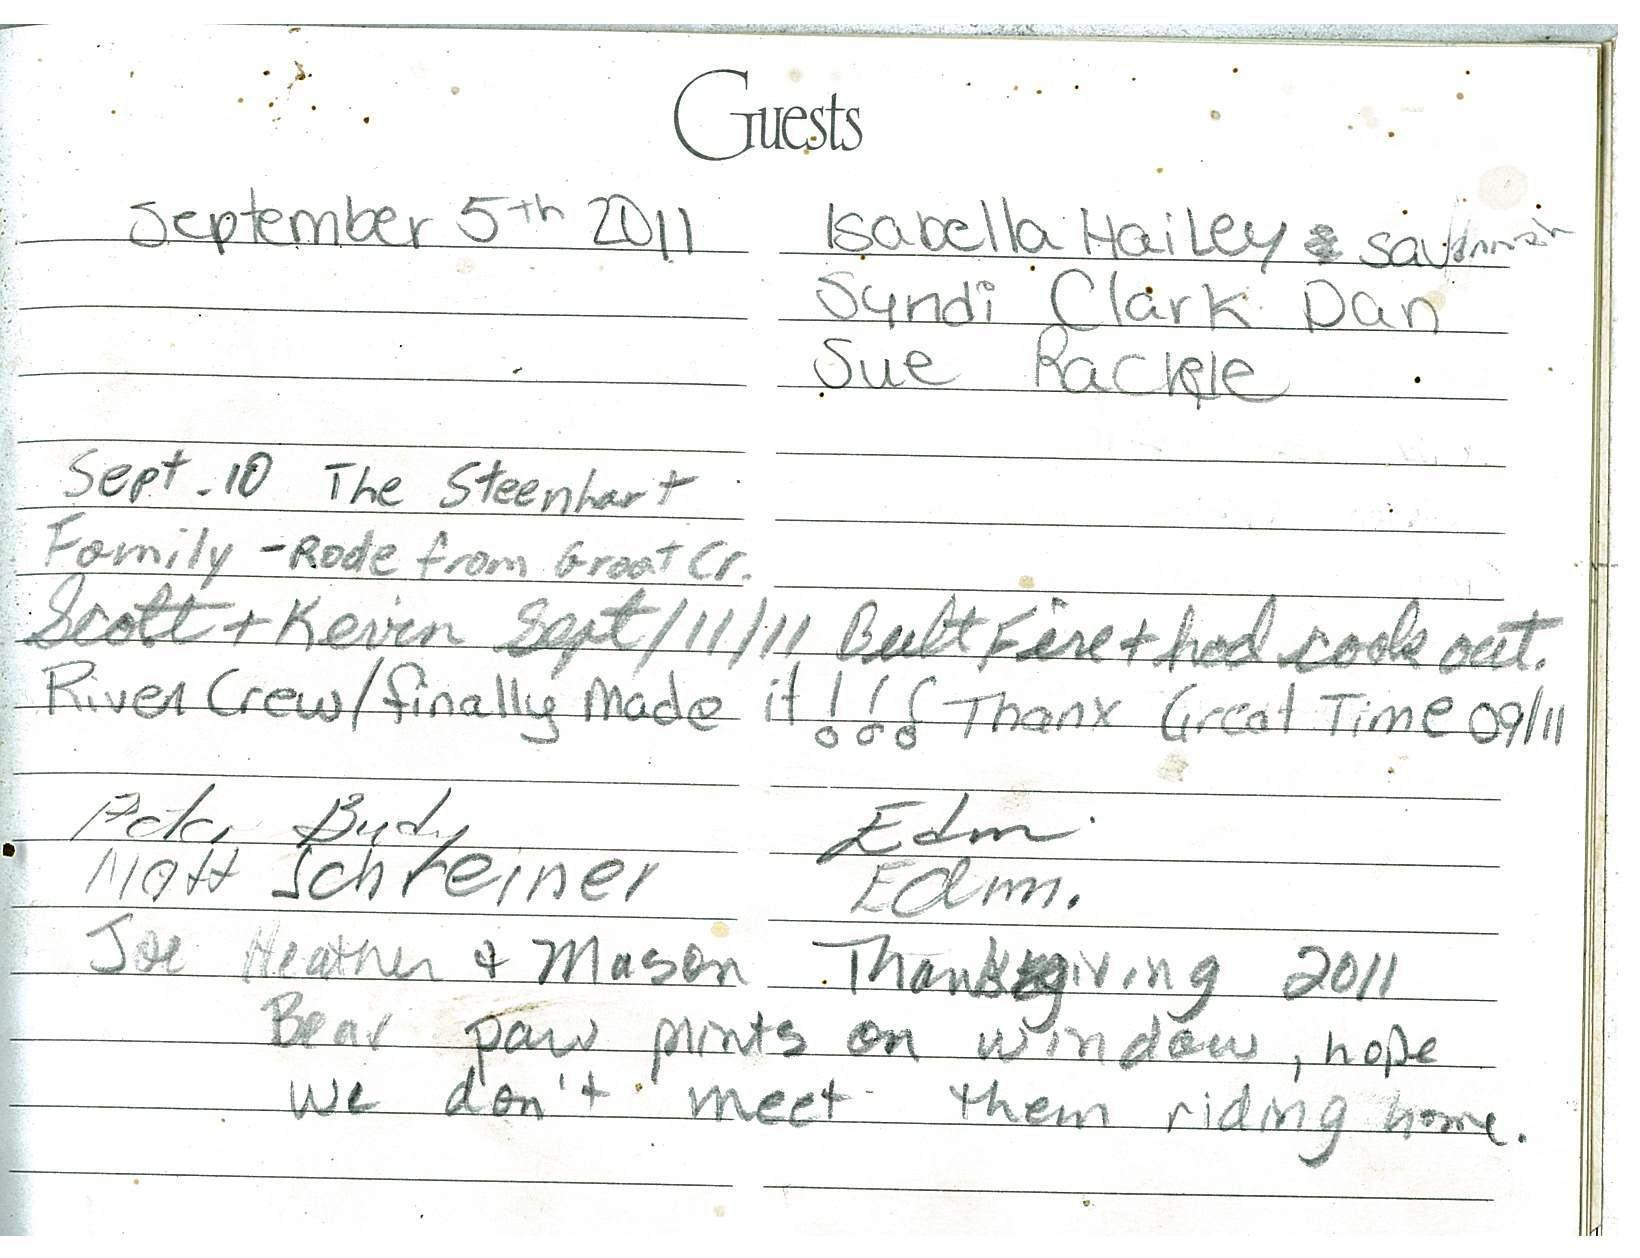 Guests
September 5th 2011 Isabella Hailey & Savannah
Syndi Clark Dan
Sue Rackle
Sept. 10 The Steenhart
Family - Rode from Groat Cr.
Scott + Kevin Sept/11/11 Built Fire + had cook out.
River Crew/finally Made it!!! Thanx Great Time 09/11
Edm.
Matt Schreiner Edmn.
Joe Heather & Mason Thanksgiving 2011
Bear paw prints on window, hope
we don't meet them riding home.